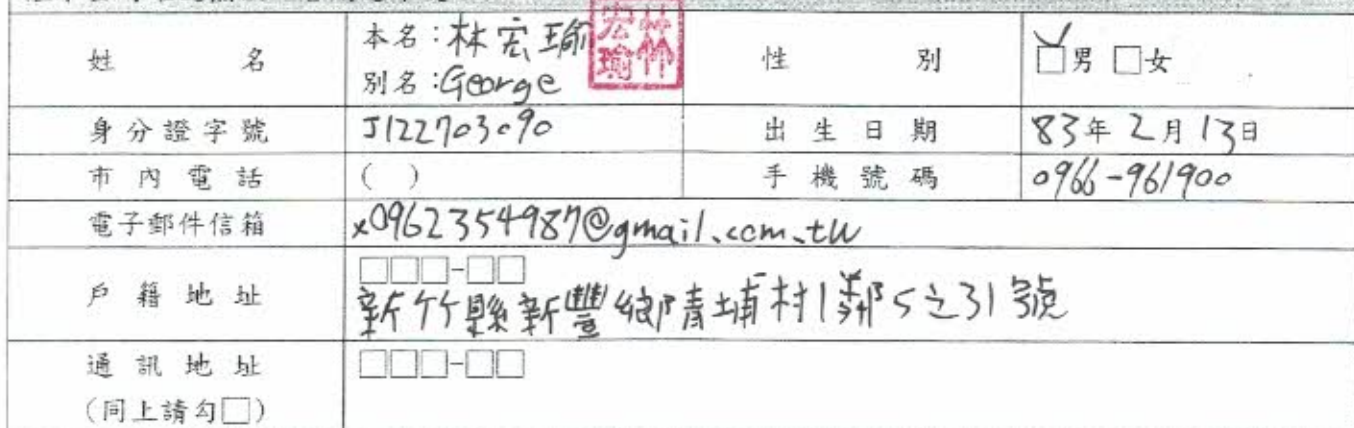 姓 名 本名:林宏瑜 性 別 ☑男 □女
別名:George
身分證字號 J122703090 出生日期 83年2月13日
市內電話 ( ) 手機號碼 0966-961900
電子郵件信箱 x0962354987@gmail.com.tw
□□□-□□
戶籍地址 新竹縣新豐鄉青埔村1鄰5之31號
通訊地址 □□□-□□
(同上請勾□)